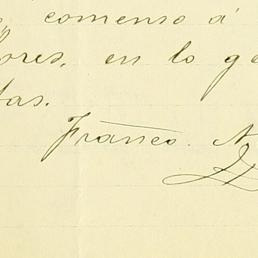 comenso á
ores, en lo ge
tas.
Franco. N